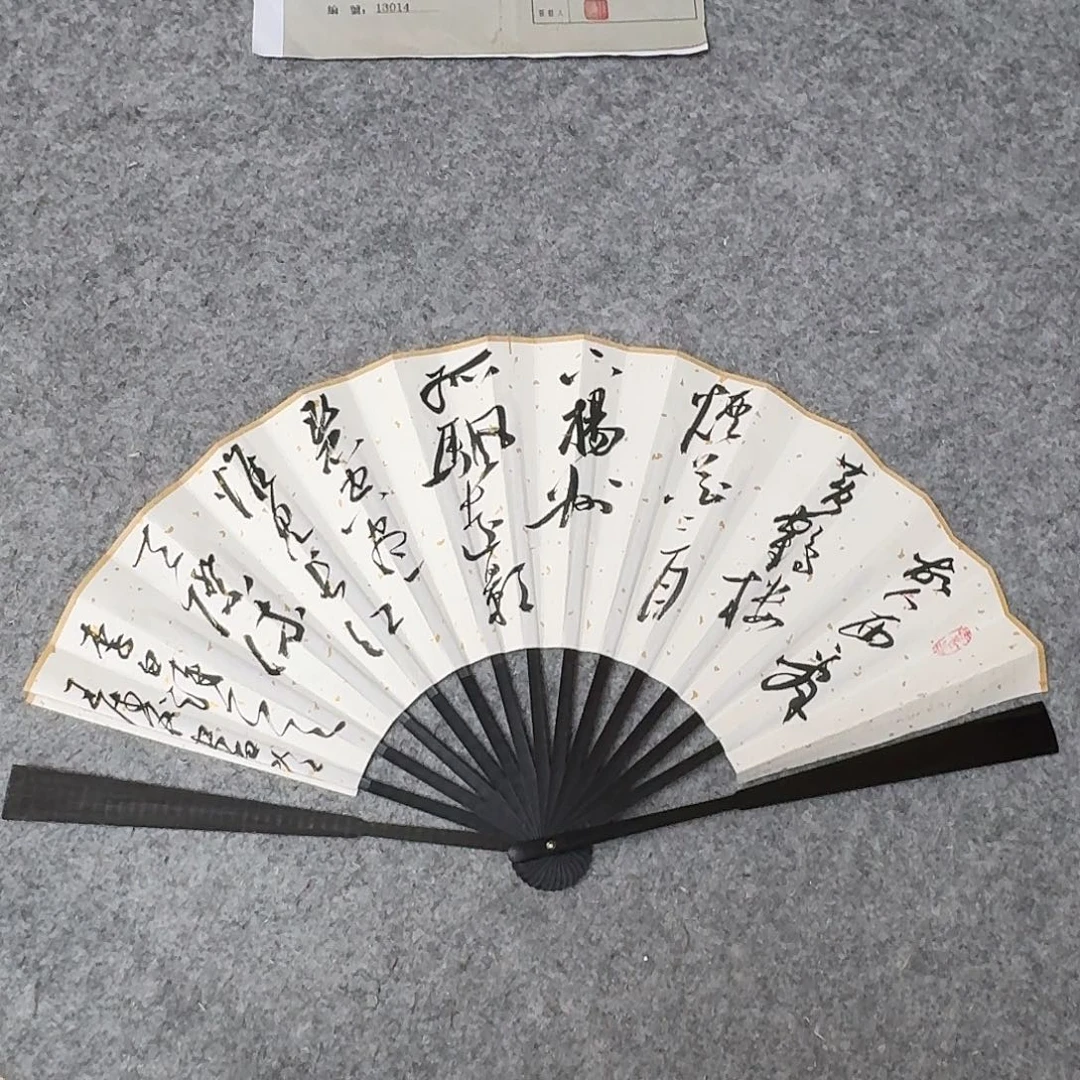 編 號: 13014
故人西辭
黃鶴樓
煙花三月
下楊州
孤帆遠影
碧空盡
惟見長江
天際流
李白